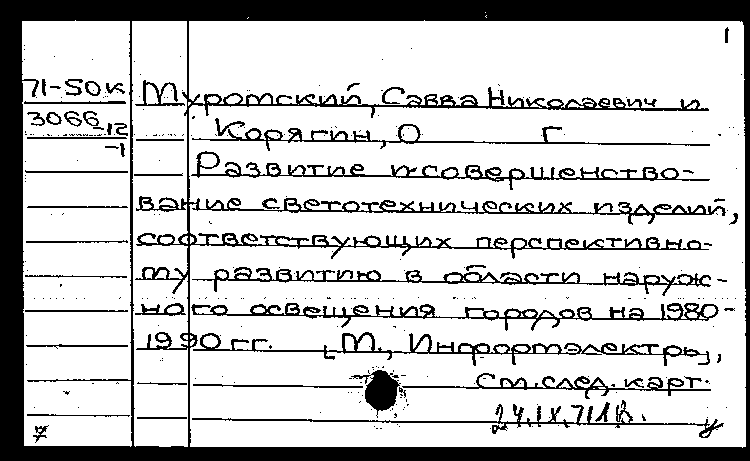 1
71-50к
3066-12
-1
Муромский, Савва Николаевич и
Корягин, О Г
Развитие и совершенство-
вание светотехнических изделий,
соответствующих перспективно-
му развитию в области наруж-
ного освещения городов на 1980-
1990 гг. [М., Информэлектро],
См. след. карт.
24.IX.71